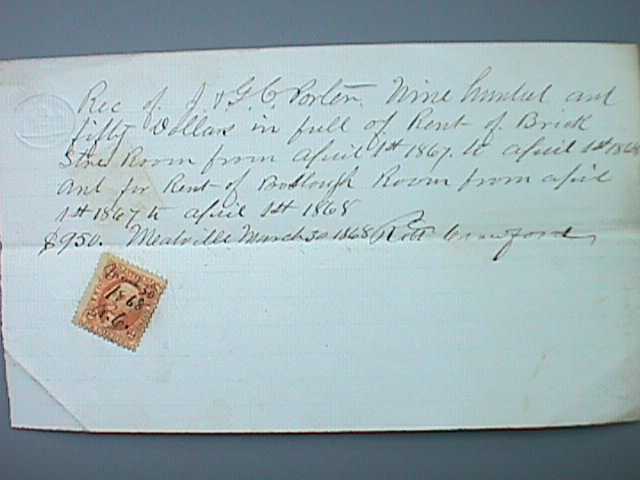 Rec of J & G. C. Porter Nine hundred and
fifty Dollars in full of Rent of Brick
Store Room from April 1st 1867. to April 1st 1868
and for Rent of Room from April
1st 1867 to April 1st 1868
$950. Meadville March 30 1868 Robt Crawford
30
1868